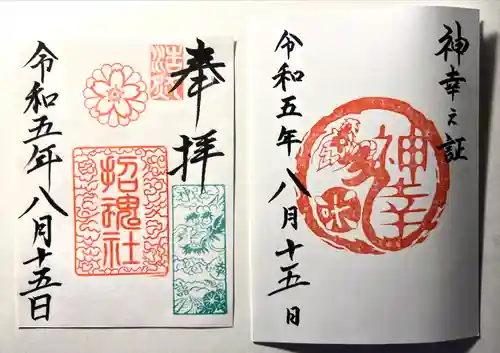 神幸之証
神幸
令和五年八月十五日
奉拝
招魂社
令和五年八月十五日